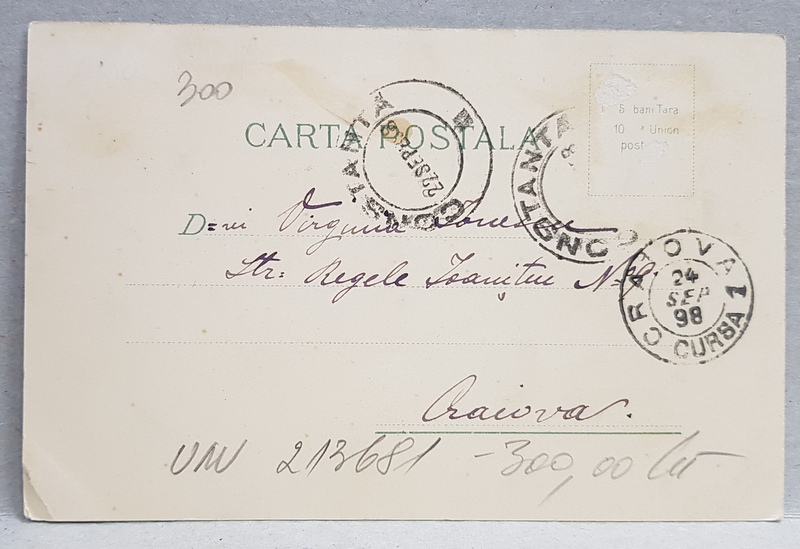 300
CARTA POSTALA
CONSTANTA
22 SEP 98
CONSTANTA
5 bani Tara
10 " Union
post
D=vi Virginia Ionescu
Str: Regele Ioanițiu No
CRAIOVA
24
SEP
98
CURSA 1
Craiova.
213681 -300,00 lei